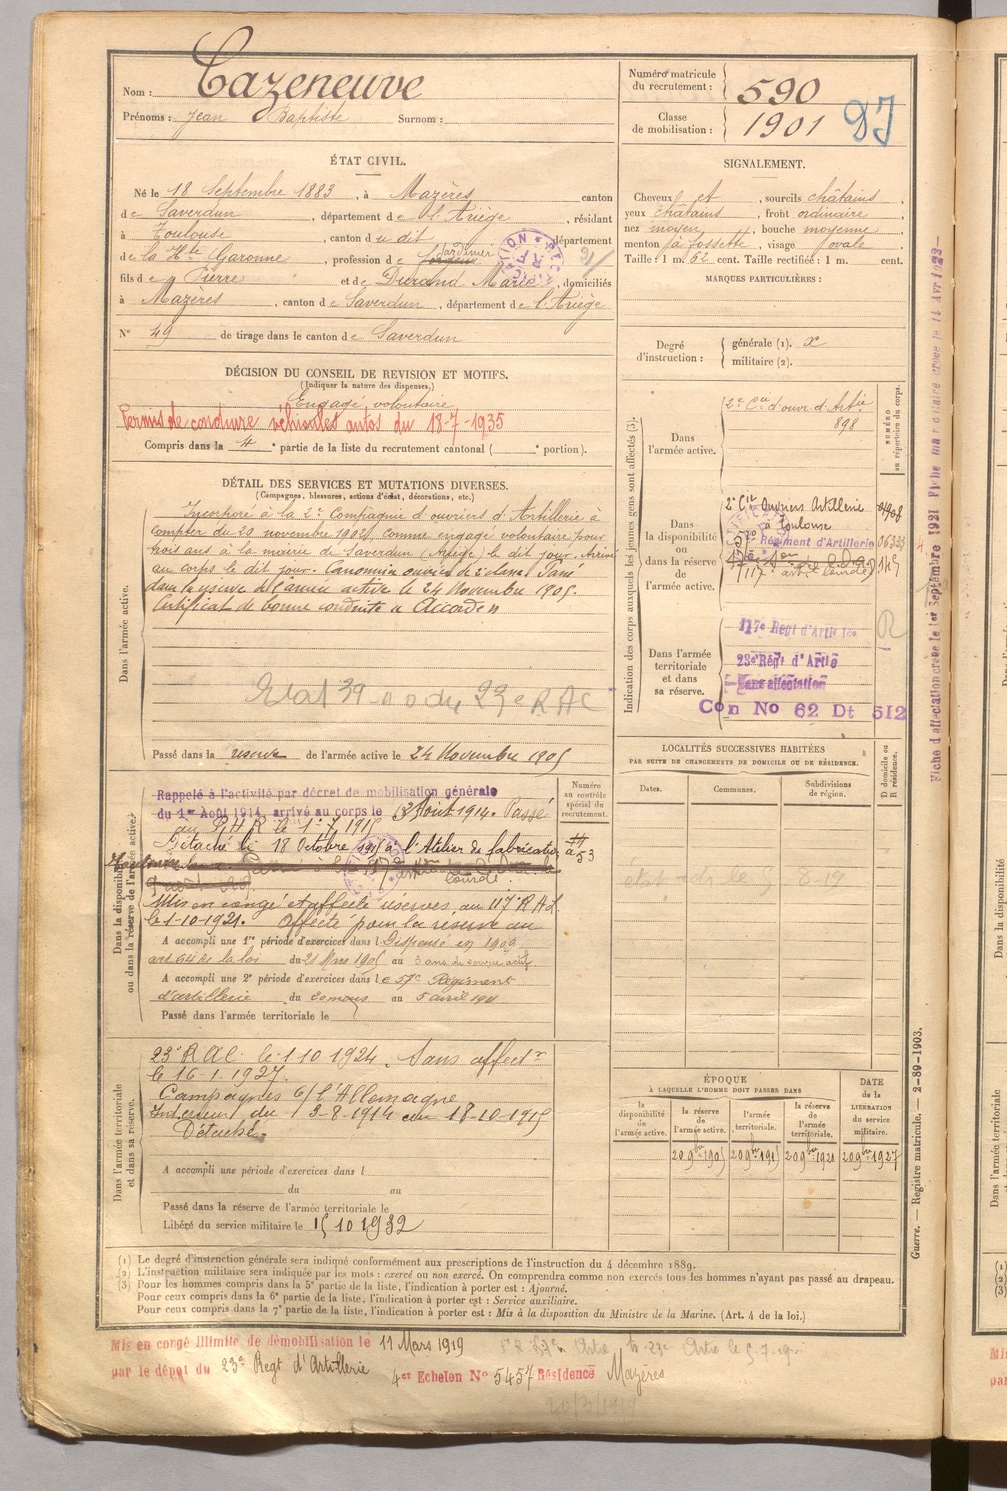 Nom : Cazeneuve
Prénoms : Jean Baptiste Surnom :
Numéro matricule du recrutement : 590
Classe de mobilisation : 1901
ÉTAT CIVIL.
Né le 18 Septembre 1883, à Mazères canton
de Saverdun, département de l'Ariège, résidant
à Toulouse, canton du dit, département
de la Hte Garonne, profession de Jardinier
fils de Pierre et de Durand Marie, domiciliés
à Mazères, canton de Saverdun, département de l'Ariège
N° 49 de tirage dans le canton de Saverdun
SIGNALEMENT.
Cheveux et, sourcils châtains,
yeux châtains, front ordinaire,
nez moyen, bouche moyenne,
menton à fossette, visage ovale
Taille : 1 m. 62 cent. Taille rectifiée : 1 m. cent.
MARQUES PARTICULIÈRES :
Degré d'instruction : générale (1). x
militaire (2).
DÉCISION DU CONSEIL DE REVISION ET MOTIFS.
(Indiquer la nature des dispenses.)
Engagé volontaire
Permis de conduire véhicules autos du 18-7-1935
Compris dans la 4e partie de la liste du recrutement cantonal ( e portion).
DÉTAIL DES SERVICES ET MUTATIONS DIVERSES.
(Campagnes, blessures, actions d'éclat, décorations, etc.)
Dans l'armée active.
Incorporé à la 2e Compagnie d'ouvriers d'Artillerie à
compter du 20 novembre 1902, comme engagé volontaire pour
trois ans à la mairie de Saverdun (Ariège) le dit jour. Arrivé
au corps le dit jour. Canonnier ouvrier de 2e classe. Passé
dans la réserve de l'armée active le 24 Novembre 1905.
Certificat de bonne conduite "Accordé"
Passé dans la réserve de l'armée active le 24 Novembre 1905
Indication des corps auxquels les jeunes gens sont affectés (3).
NUMÉRO au répertoire du corps.
Dans l'armée active.
2e Cie d'ouvr. d'Artie
898
Dans la disponibilité ou dans la réserve de l'armée active.
2e Cie Ouvriers Artillerie
à Toulouse
57e Régiment d'Artillerie
117e art. lourde
Dans l'armée territoriale et dans sa réserve.
117e Régt d'Artie Lde
23e Régt d'Artie
Sans affectation
Con No 62 Dt 512
Fiche d'affectation créée le 1er Septembre 1921
LOCALITÉS SUCCESSIVES HABITÉES
PAR SUITE DE CHANGEMENTS DE DOMICILE OU DE RÉSIDENCE.
D domicile ou R résidence.
Dates. Communes. Subdivisions de région.
Dans la disponibilité ou dans la réserve de l'armée active.
Numéro au contrôle spécial du recrutement.
Rappelé à l'activité par décret de mobilisation générale
du 1er Août 1914, arrivé au corps le 3 Août 1914. Passé
au P.H.R le 1.7.191
Détaché le 18 Octobre 1915 à l'Atelier de fabrication
Toulouse
Mis en congé et affecté réserves au 117e R A L
le 1-10-1921. Affecté pour la réserve au
A accompli une 1re période d'exercices dans l Dispensé en 1909
art 64 de la loi du 21 Mars 1905 au 3 ans de service actif
A accompli une 2e période d'exercices dans le 57e Régiment
d'artillerie du 20 mars au 5 avril 1911
Passé dans l'armée territoriale le
Dans l'armée territoriale et dans sa réserve.
23e R A C. le 1 10 1924. Sans affectn
le 16-1.1927.
Campagnes c/ l'Allemagne
Intérieur du 3-8-1914 au 18-10-1915
Détaché
A accompli une période d'exercices dans l
du au
Passé dans la réserve de l'armée territoriale le
Libéré du service militaire le 15 10 1932
ÉPOQUE
À LAQUELLE L'HOMME DOIT PASSER DANS
DATE de la LIBÉRATION du service militaire.
la disponibilité de l'armée active. la réserve de l'armée active. l'armée territoriale. la réserve de l'armée territoriale.
20 9bre 1905 20 9bre 1915 20 9bre 1921 20 9bre 1927
(1) Le degré d'instruction générale sera indiqué conformément aux prescriptions de l'instruction du 4 décembre 1889.
(2) L'instruction militaire sera indiquée par les mots : exercé ou non exercé. On comprendra comme non exercés tous les hommes n'ayant pas passé au drapeau.
(3) Pour les hommes compris dans la 5e partie de la liste, l'indication à porter est : Ajourné.
Pour ceux compris dans la 6e partie de la liste, l'indication à porter est : Service auxiliaire.
Pour ceux compris dans la 7e partie de la liste, l'indication à porter est : Mis à la disposition du Ministre de la Marine. (Art. 4 de la loi.)
Guerre. — Registre matricule. — 2-89-1903.
Mis en congé illimité de démobilisation le 11 Mars 1919
par le dépôt du 23e Régt d'Artillerie 4er Echelon N° 5457 Résidence Mazères